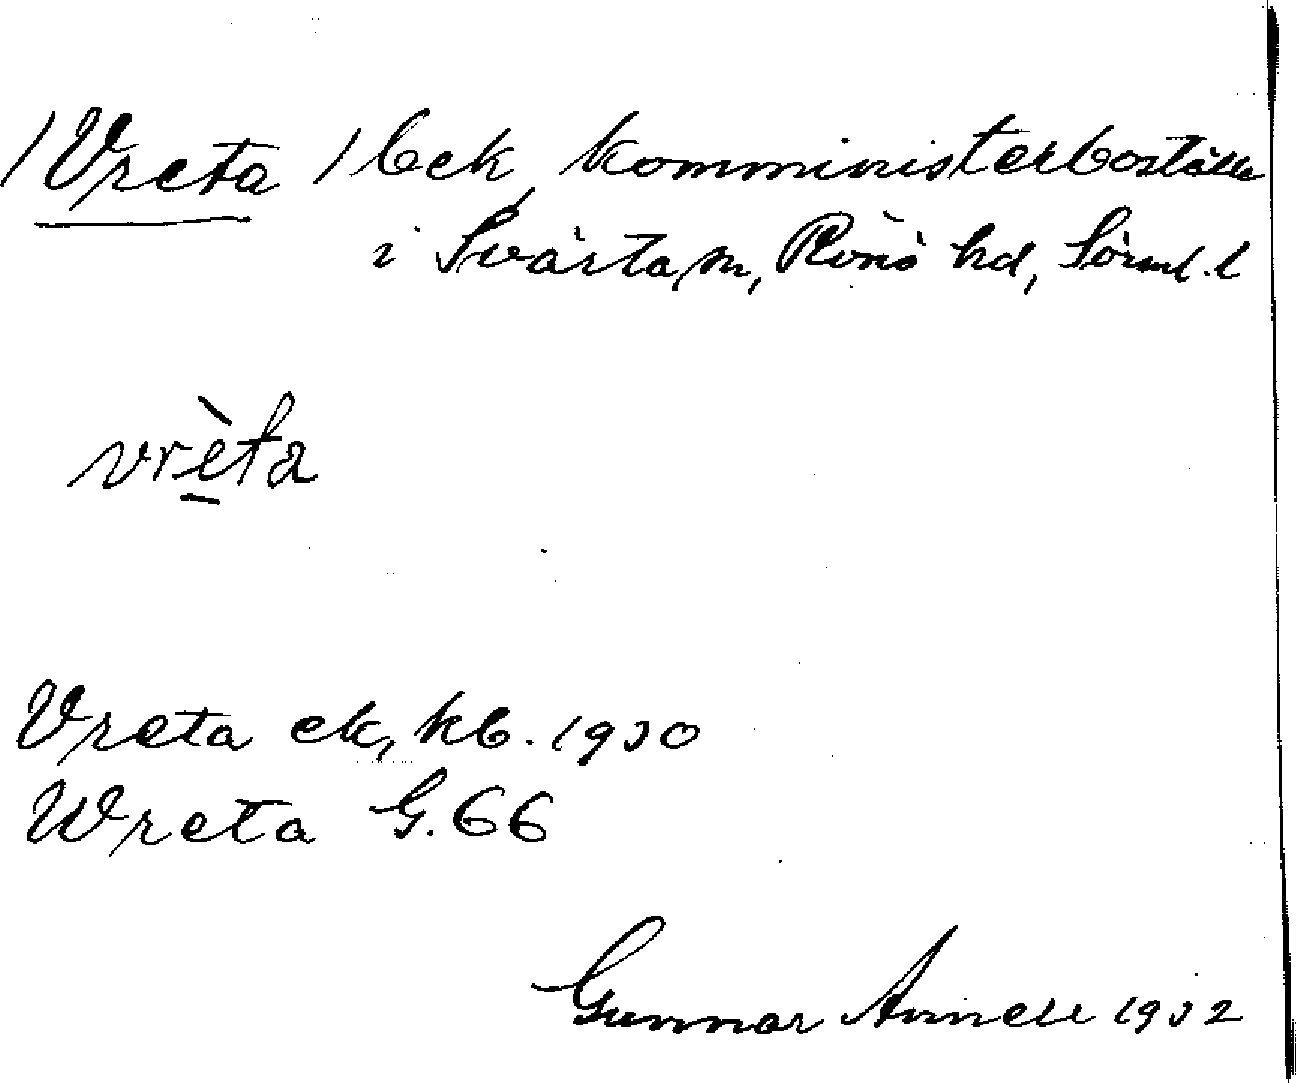 /Vreta / bek, komministerboställe
i Svärta sn, Rönö hd, Sörml. l
vrèta
Vreta ek, kb. 1930
Wreta G. 66
Gunnar Annell 1932